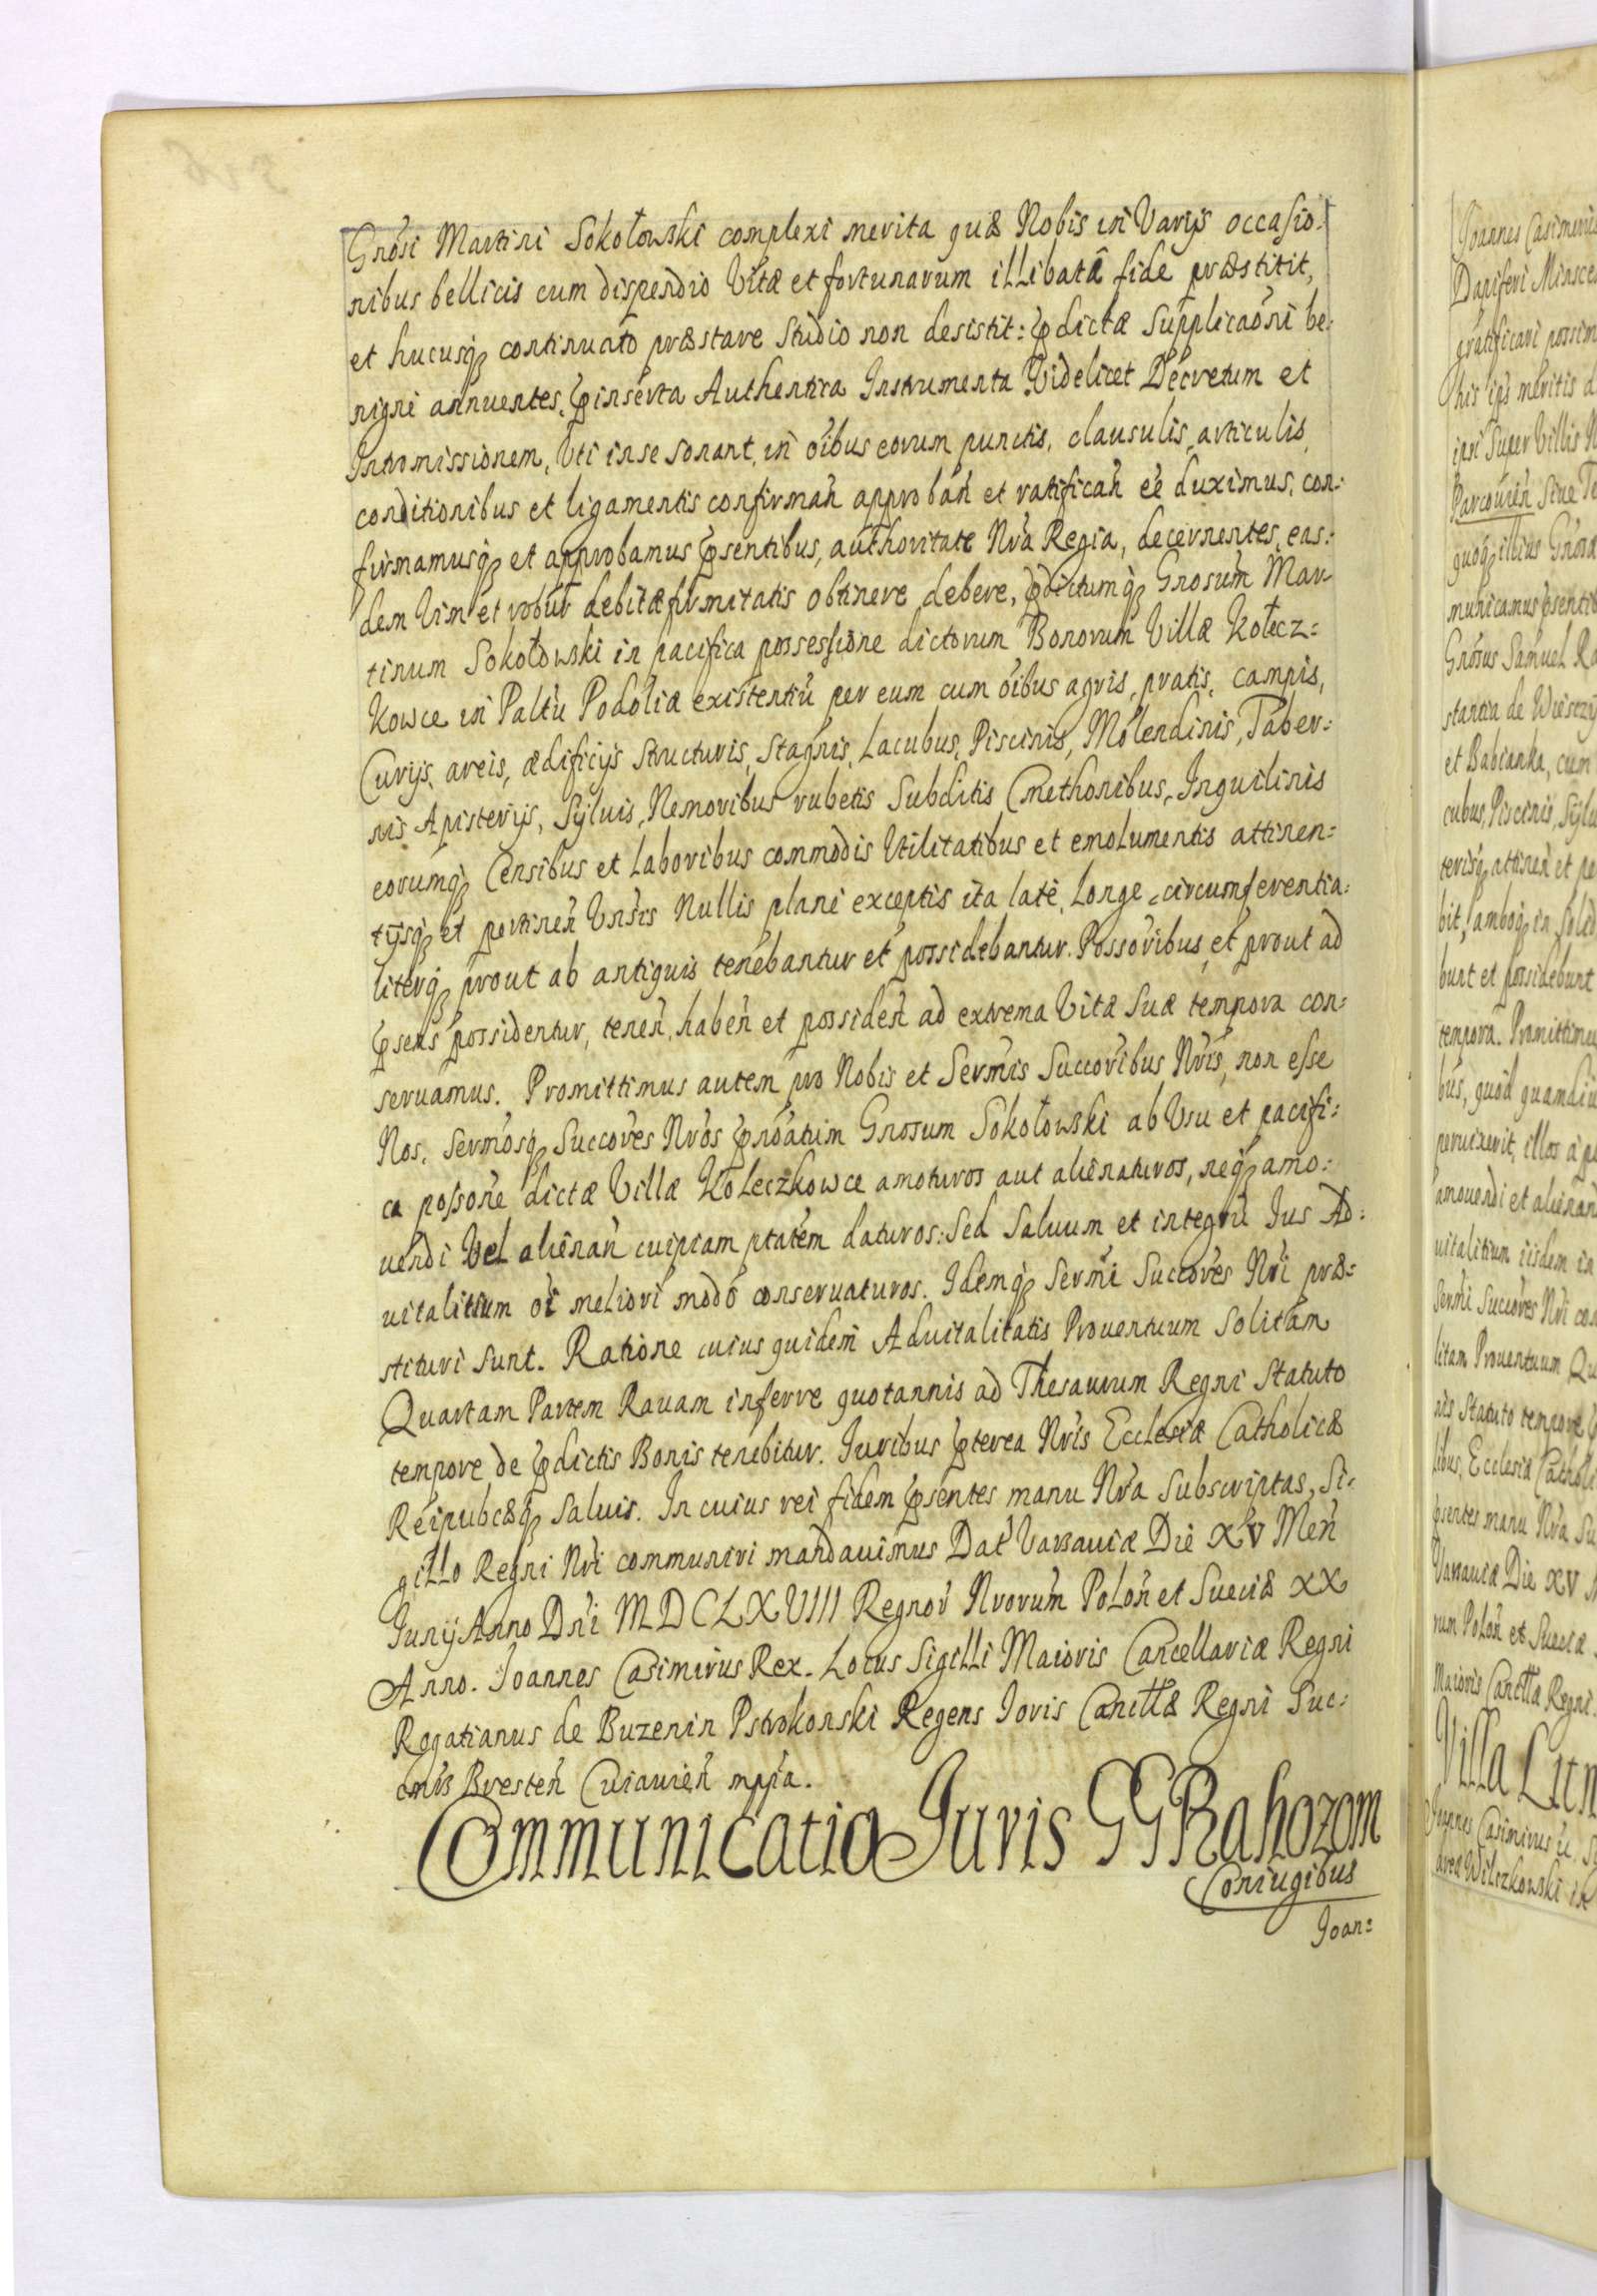 Gnosi Martini Sokołowski complexi merita quæ Nobis in Varijs occasio:
nibus bellicis cum dispendio Vitæ et fortunarum illibatâ fide præstitit,
et hucusq̨ continuato præstare Studio non desistit: p̄dictæ Supplicaōni be:
nigne annuentes, p̄inserta Authentica Instrumenta Videlicet Decretum et
Intromissionem, Uti in se sonant, in oibus eorum punctis, clausulis, articulis,
conditionibus et ligamentis confirmań approbań et ratificań eē duximus, con:
firmamusq̨ et approbamus p̄sentibus, authoritate Nrā Regia, decernentes, eas:
dem Vim et robur debitæ firmitatis obtinere debere, p̄dictumq̨ Gnosum Mar:
tinum Sokołowski in pacifica possessione dictorum Bonorum Villæ Kołecz:
kowce in Paltū Podoliæ existentiū per eum cum oibus agris, pratis, campis,
Curijs, areis, ædificijs structuris, Stagnis, Lacubus, Piscinis, Molendinis, Taber:
nis Apisterijs, Sylvis, Nemoribus rubetis Subditis Cmethonibus, Inquilinis
eorumq̨ Censibus et Laboribus commodis Utilitatibus et emolumentis attinen:
tijsq̨ et pertineń Unsis Nullis plane exceptis ita late, Longe, circumferentia:
literq̨ prout ab antiquis tenebantur et possidebantur. Possoribus, et prout ad
p̄sens possidentur, teneń, habeń et possideń ad extrema Vitæ Suæ tempora con:
servamus. Promittimus autem pro Nobis et Sermis Succoribus Nris, non esse
Nos, Sermosq̨ Succores Nros p̄noatum Gnosum Sokołowski ab Usu et pacifi:
ca possone dictæ Villæ Koleczkowce amoturos aut alienaturos, neq̨ amo:
uendi Vel alienań cuipiam ptatem daturos: Sed Saluum et integrū Ius Ad:
uitalitium oi meliori modo conservaturos. Idemq̨ Sermi Succores Nri præ:
stituri sunt. Ratione cuius quidem Aduitalitatis Prouentuum Solitam
Quartam Partem Rauam inferre quotannis ad Thesaurum Regni Statuto
tempore de p̄dictis Bonis tenebitur. Iuribus p̄terea Nris Ecclesiæ Catholicæ
Reipubcæq̨ saluis. In cuius rei fidem p̄sentes manu Nra Subscriptas, Si:
gillo Regni Nri communiri mandauimus Dat Varsauiæ Die XV Meń
Iunij Anno Dni MDCLXVIII Regnor Nrorum Poloń et Sueciæ XX
Anno. Ioannes Casimirus Rex. Locus Sigilli Maioris Cancellariæ Regni
Rogatianus de Buzenin Pstrokonski Regens Ioris Canctlæ Regni Suc:
cmīs Bresteń Cuiauień mppa.
Communicatio Iuris GG Rahozom
Coniugibus
Ioan:
Ioannes Casimirus
Dapiferi Minsce
gratificari possim
his ips meritis d
ipsi Super Villis
Parcouień Siue
quoq̨ illius Gnosa
municamus p̄sentib
Gnosus Samuel Ra
stantia de Wisczy
et Babianka, cum
cubus, Piscinis, Sylu
terisq̨ attineń et pe
bit, amboq̨ in Solid
bunt et possidebunt
tempora. Promittimu
bus, quod quamdiu
peruixerit, illos a p
amouendi et alienand
uitalitium iisdem in
Sermi Succores Nri con
litam Prouentuum Qu
nis Statuto tempore
libus, Ecclesiæ Catholi
p̄sentes manu Nra Su
Varsauiæ Die XV
rum Poloń et Sueciæ
Maioris Canctlæ Regni.
Villa Lun
Ioannes Casimirus
Wilczkowski